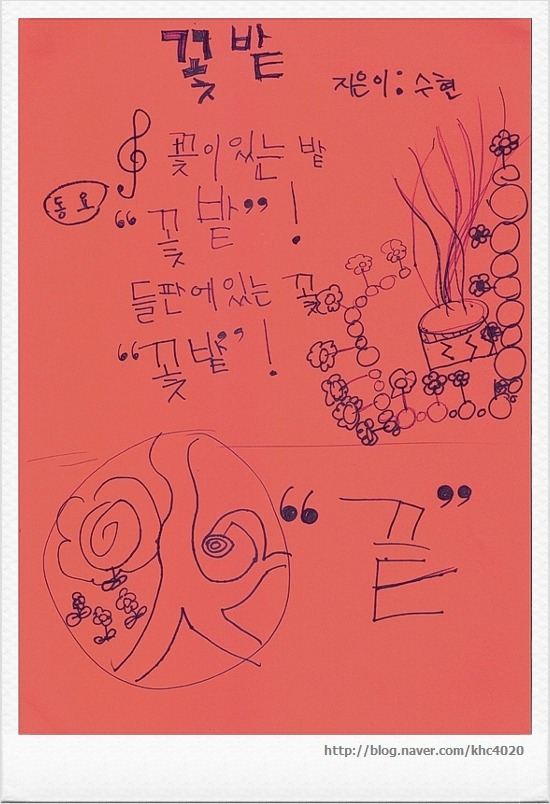 꽃밭
지은이: 수현
꽃이 있는 밭
동요
“꽃밭”!
들판에 있는 꽃
“꽃밭”!
“끝”
http://blog.naver.com/khc4020